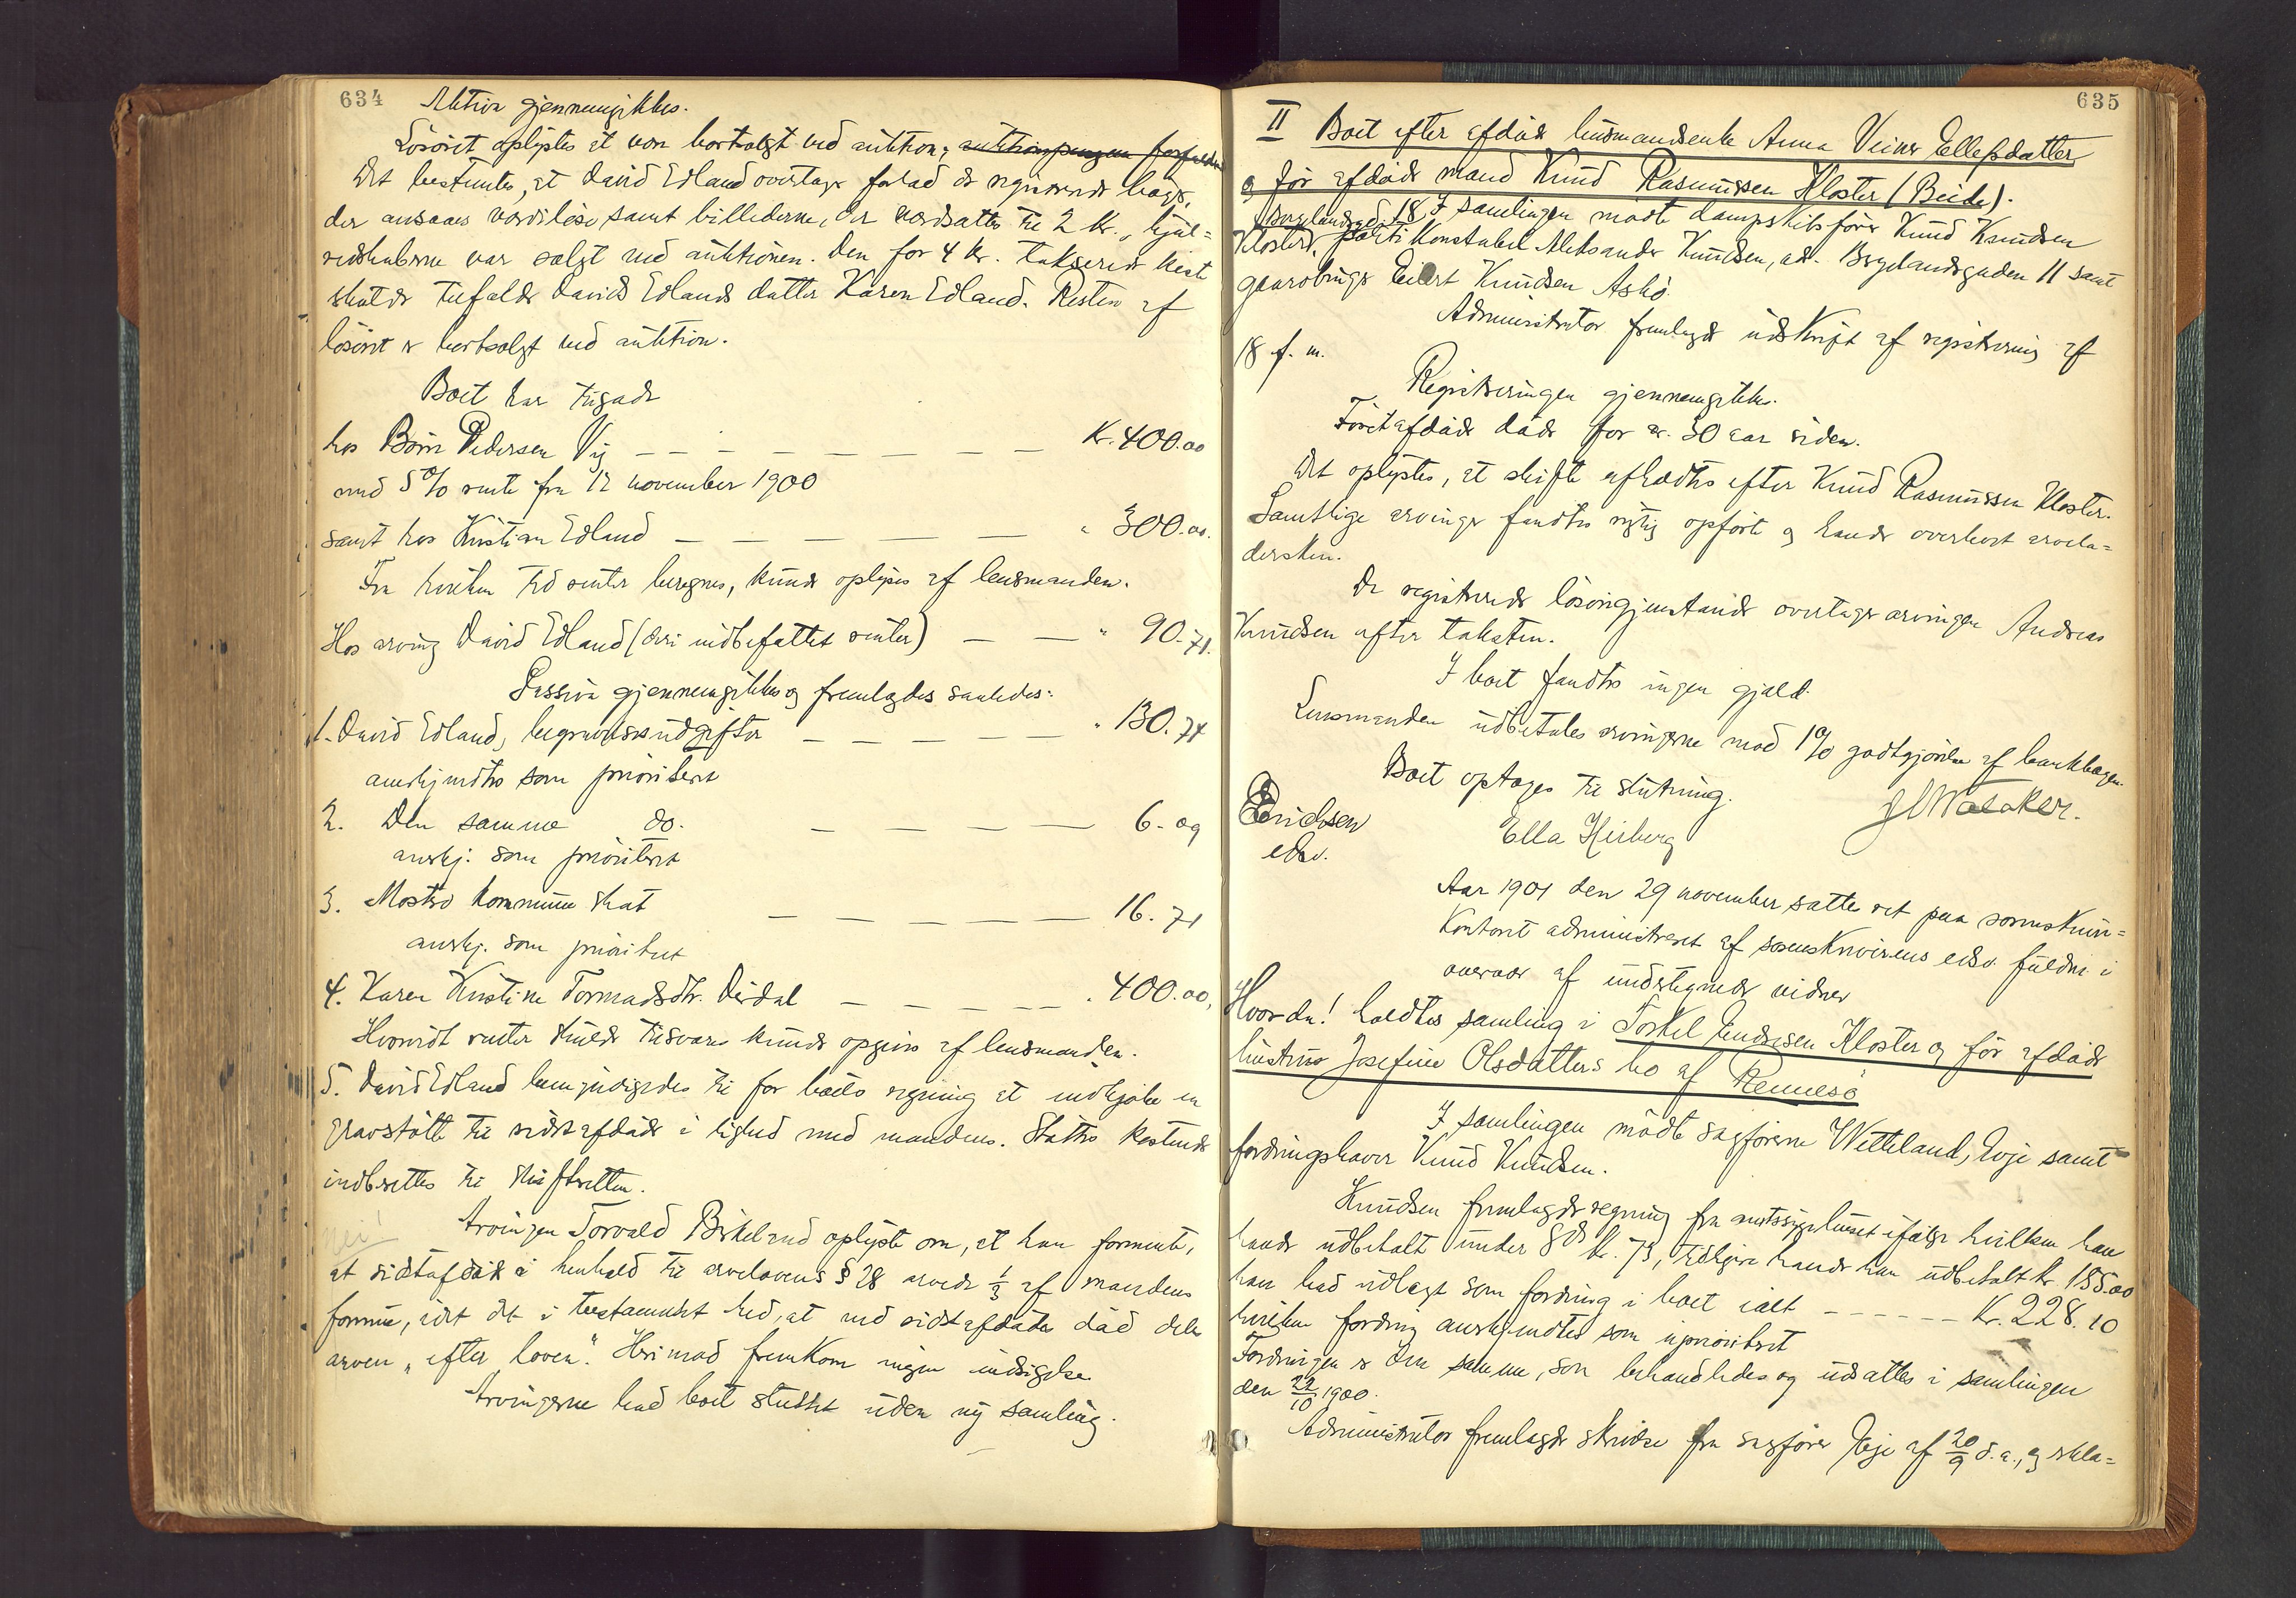 634
Aktiva gjennemgikkes.
Løsøret oplystes at være bortsolgt ved auktion; auktionspengene forfalder
Det bestemtes, at David Edland overtager forlod de registrerede bøger,
der ansaaes værdiløse samt billederne, der værdsattes til 2 kr., kjøl=
redskaberne var solgt ved auktionen. Den for 4 kr. takserede kiste
skulde tilfalde Davids Edlands datter Karen Edland. Resten af
løsøret er bortsolgt ved auktion.
Boet har tilgode
hos Børre Pedersen Vig — — — — — — — Kr. 400.00
med 5% rente fra 12 november 1900
samt hos Kristian Edland — — — — — " 300.00.
Fra hvilken tid renter beregnes, kunde oplyses af lensmanden.
Hos arving David Edland (deri indbefattet renter) — — " 90.71.
Passiva gjennemgikkes og fremlagdes saaledes:
1. David Edland, begravelsesudgifter — — — — — " 130.74
anerkjendtes som prioriteret
2. Den samme do. — — — — 6.09
anerkj. som prioriteret
3. Mosterø kommune skat — — — — — 16.71
anerkj. som prioriteret
4. Karen Kristine Tormodsdtr. Dirdal — — — — " 400.00,
Hvorvidt renter skulde tilsvares kunde opgives af lensmanden.
5. David Edland bemyndigedes til for boets regning at indkjøbe en
gravstøtte til sidstafdøde i lighed med mandens. Støttes kostende
indberettes til skifteretten.
nei!
Arvingen Torvald Birkeland oplyste om, at han formente,
at sidstafdøde i henhold til arvelovens § 28 arvede 1/3 af mandens
formue, idet det i testamentet hed, at ved sidstafdødes død deles
arven „efter loven". Herimod fremkom ingen indsigelse.
Arvingerne bad boet sluttet uden ny samling.
635
II Boet efter afdøde husmandsenke Anna Vciner Ellefsdatter
og før afdøde mand Knud Rasmussen Kloster (Beide).
I samlingen mødte dampskibsfører Knud Knudsen
Klosters 18, politikonstabel Aleksander Knudsen, adr. Bergelandsgaden 11 samt
gaardbruger Eilert Knudsen Askø.
Administrator fremlagde udskrift af registrering af
18 f. m.
Registreringen gjennemgikkes.
Førstafdøde døde for ca. 30 aar siden.
Det oplystes, at skifte afholdtes efter Knud Rasmussen Kloster.
Samtlige arvinger fandtes rigtig opført og havde overlevet arvela=
dersken.
De registrerede løsøregjenstande overtages arvingen Andreas
Knudsen efter taksten.
I boet fandtes ingen gjæld.
Lensmanden udbetales arvingerne mod 1% godtgjørelse af bankbogen.
Boet optages til slutning.
Erichsen
edsv.
Ella Hirberg
J Wataker.
Aar 1901 den 29 november sattes ret paa sorenskriver=
kontoret administreret af sorenskriverens edsv. fuldm. i
overvær af undertegnede vidner
Hvor da! holdtes samling i Torkel Endresen Kloster og før afdøde
hustrus Josefine Olsdatters bo af Rennesø
I samlingen mødte sagførerne Wetteland, Eoje samt
fordringshaver Knud Knudsen.
Knudsen fremlagde regning fra amtssygehuset ifølge hvilken han
havde udbetalt under 8de kr. 73, tidligere havde han udbetalt kr 155.00
han bad udlagt som fordring i boet ialt - - - - - Kr. 228.10
hvilken fordring anerkjendtes som uprioriteret
Fordringen er den samme, som behandledes og udsattes i samlingen
den 22/10 1900.
Administrator fremlagde skrivelse fra sagfører Eoje af 20/9 d. a., og rekla=